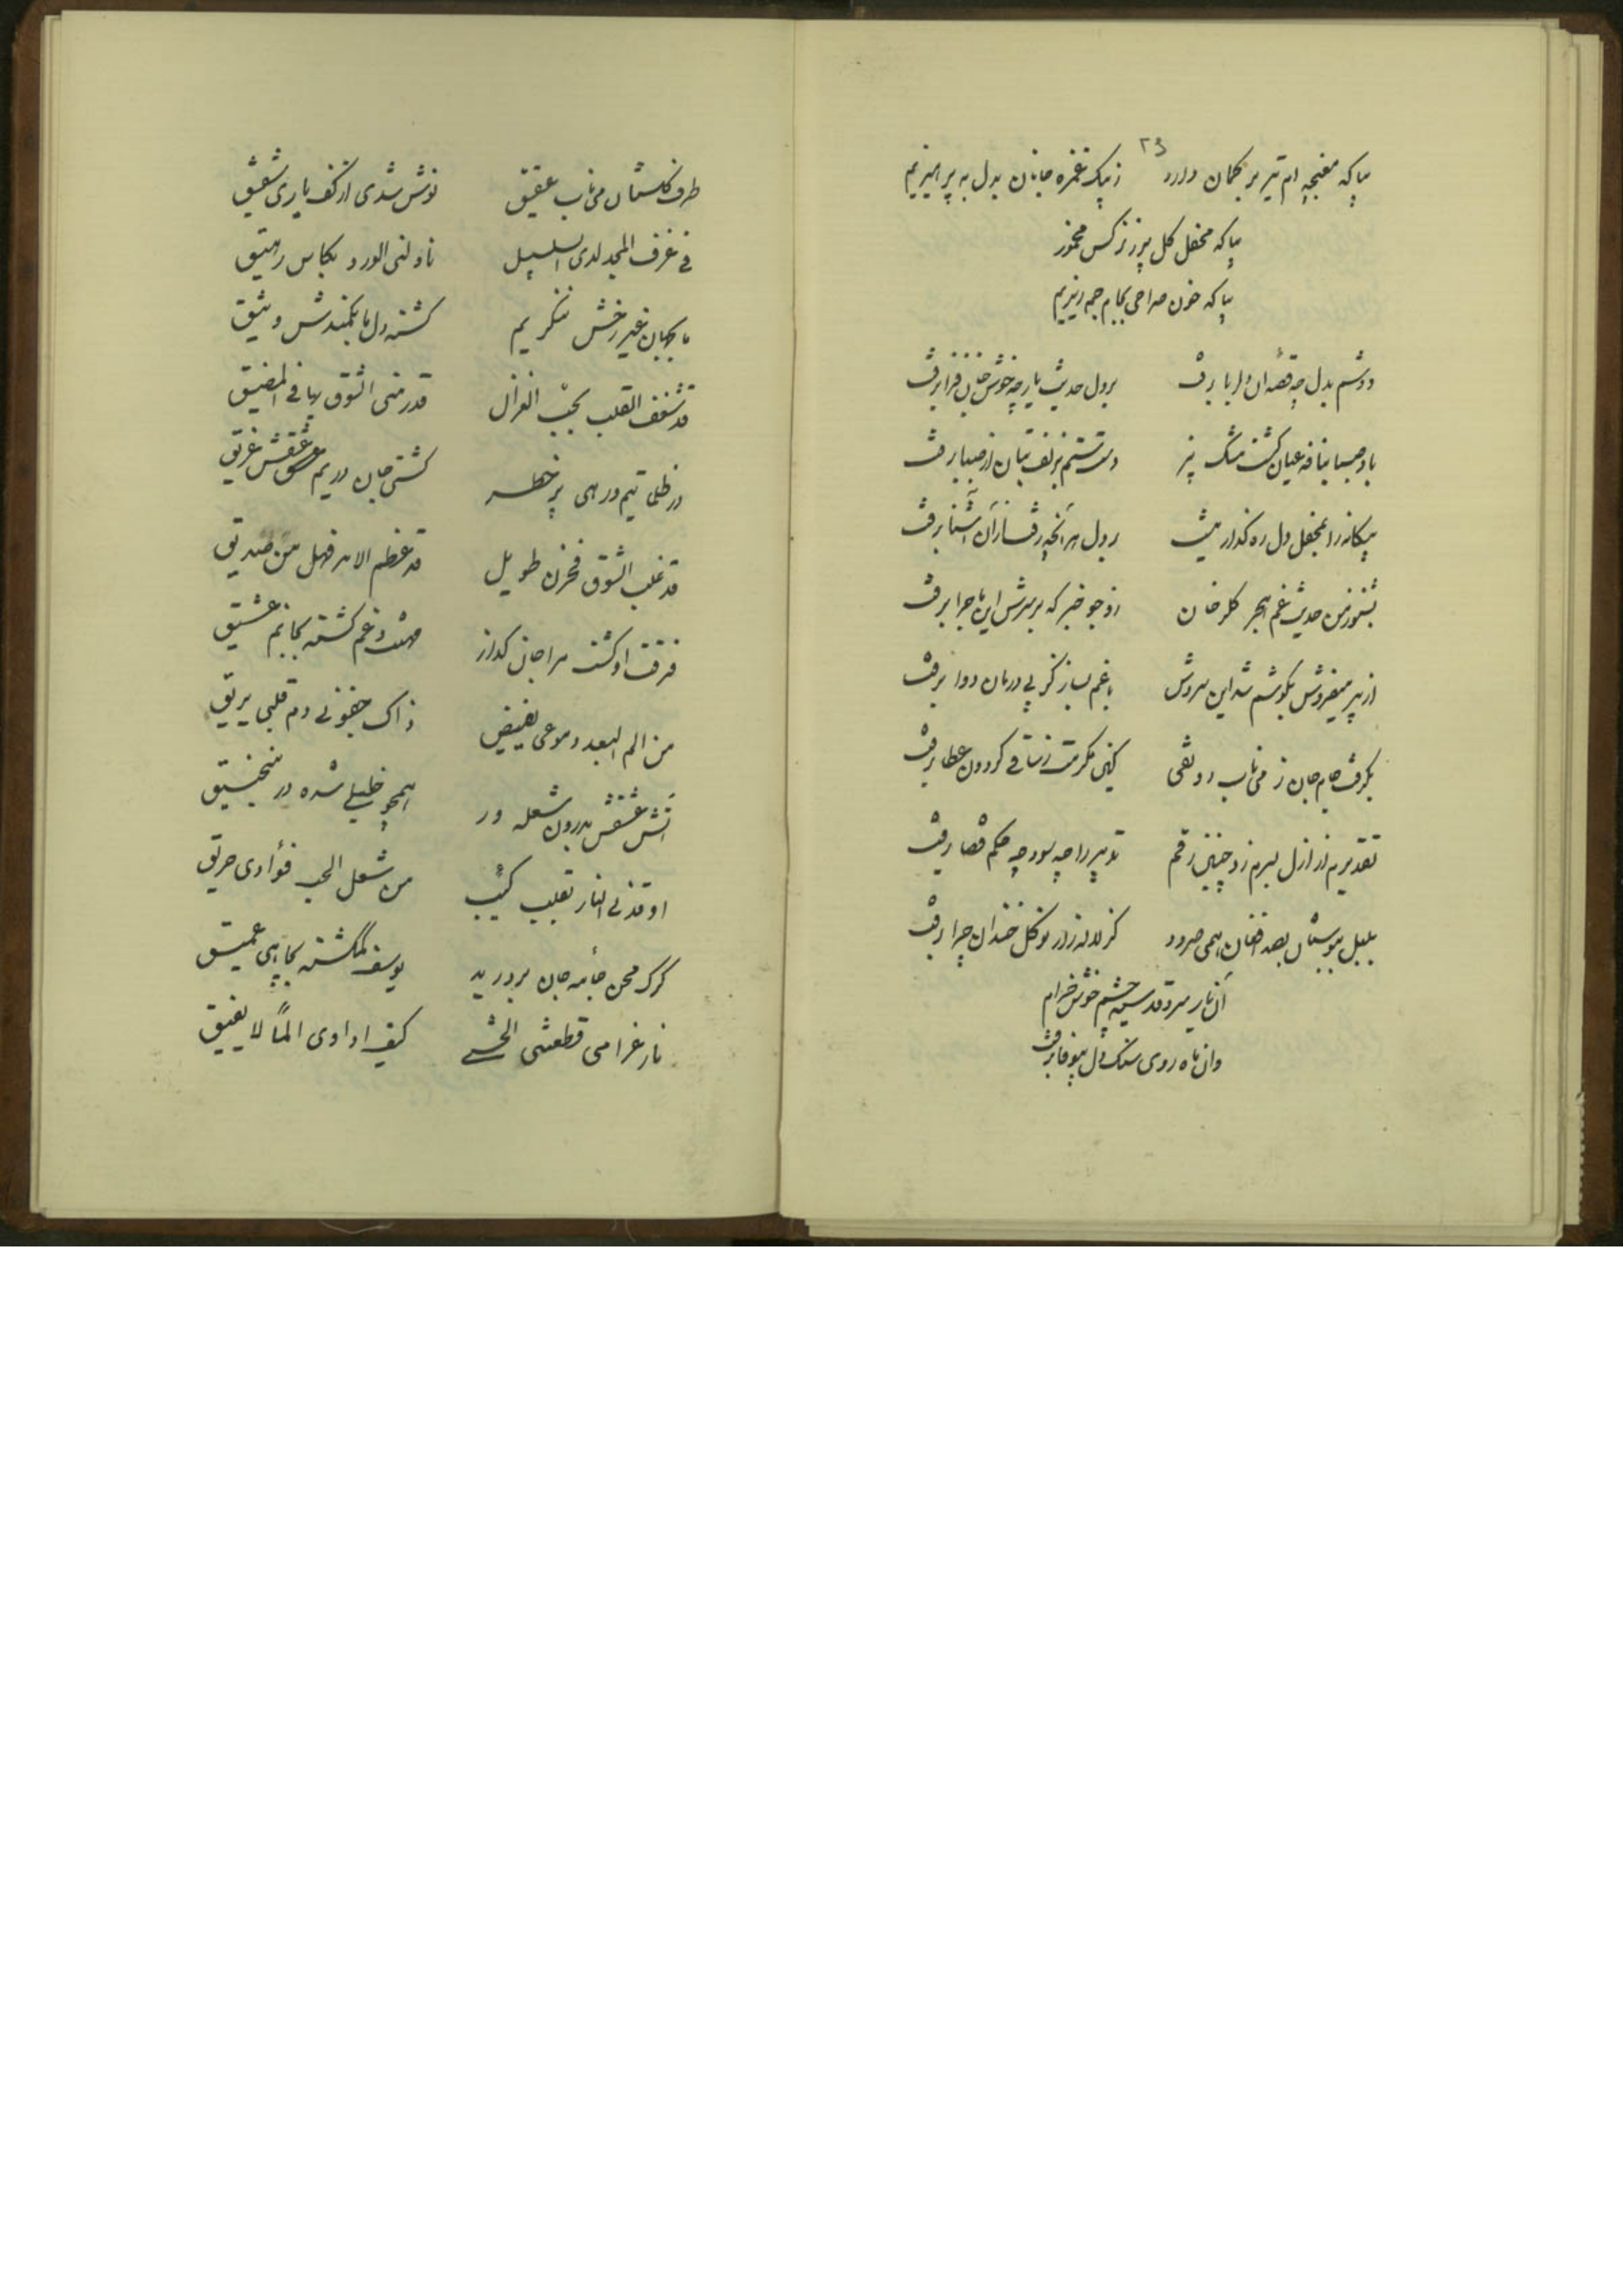 ۲۳
بیا که مغبچه ام تیر بر کمان دارد زپیک غمزه جانان بدل به پرهیزیم
بیا که محفل گل پر ز نرگس مخمور
بیا که خون صراحی بجام جم ریزیم
دوشم بدل چه قصه آن دلربا برفت بر دل حدیث یار چه خوش جان فزا برفت
باد صبا بنافه عیان گشت مشک بیز دست ستم بزلف بتان از صبا برفت
بیگانه را بمحفل دل ره گذار نیست بر دل هر آنچه رفت از آن آشنا برفت
بشنو زمن حدیث غم هجر گلرخان زو جو خبر که بر سرش این ماجرا برفت
از پیر میفروش بگوشم شد این سروش با غم بساز کز پی درمان دوا برفت
بگرفت جام جان ز می ناب رونقی کین مکرمت ز ساقی گردون عطا برفت
تقدیرم از ازل بسرم زد چنین رقم تدبیر را چه سود چه حکم قضا برفت
بلبل ببوستان بصد افغان همی سرود کز لاله زار نوگل خندان چرا برفت
آن یار سرو قد سیه چشم خوش خرام
وان ماه روی سنگ دل بیوفا برفت
طرف گلستان می ناب عقیق نوش شدی از کف یاری شفیق
فی غرف المجد لدی السلسبیل ناولنی الورد بکاس رحیق
ما بجهان غیر رخش ننگریم گشته دل ما بکمندش وثیق
قد شغف القلب بحب الغزال قد رمنی الشوق بها فی المضیق
در ظلماتیم و رهی پر خطر کشتی جان در یم عشقش غریق
قد غلب الشوق فحزن طویل قد عظم الامر فهل من صدیق
فرقت او گشت مرا جان گداز مونس و غم گشته بجانم عشیق
من الم البعد دموعی یفیض ذاک جفونی دم قلبی یریق
آتش عشقش بدرون شعله ور همچو خلیلی شده در منجنیق
اوقدنی النار بقلب کئیب من شعل الحب فؤادی حریق
گرگ محن جامه جان بر درید یوسف گمگشته بچاهی عمیق
نار غرامی قطعتنی الحشی کیف اداوی الماً لا یفیق